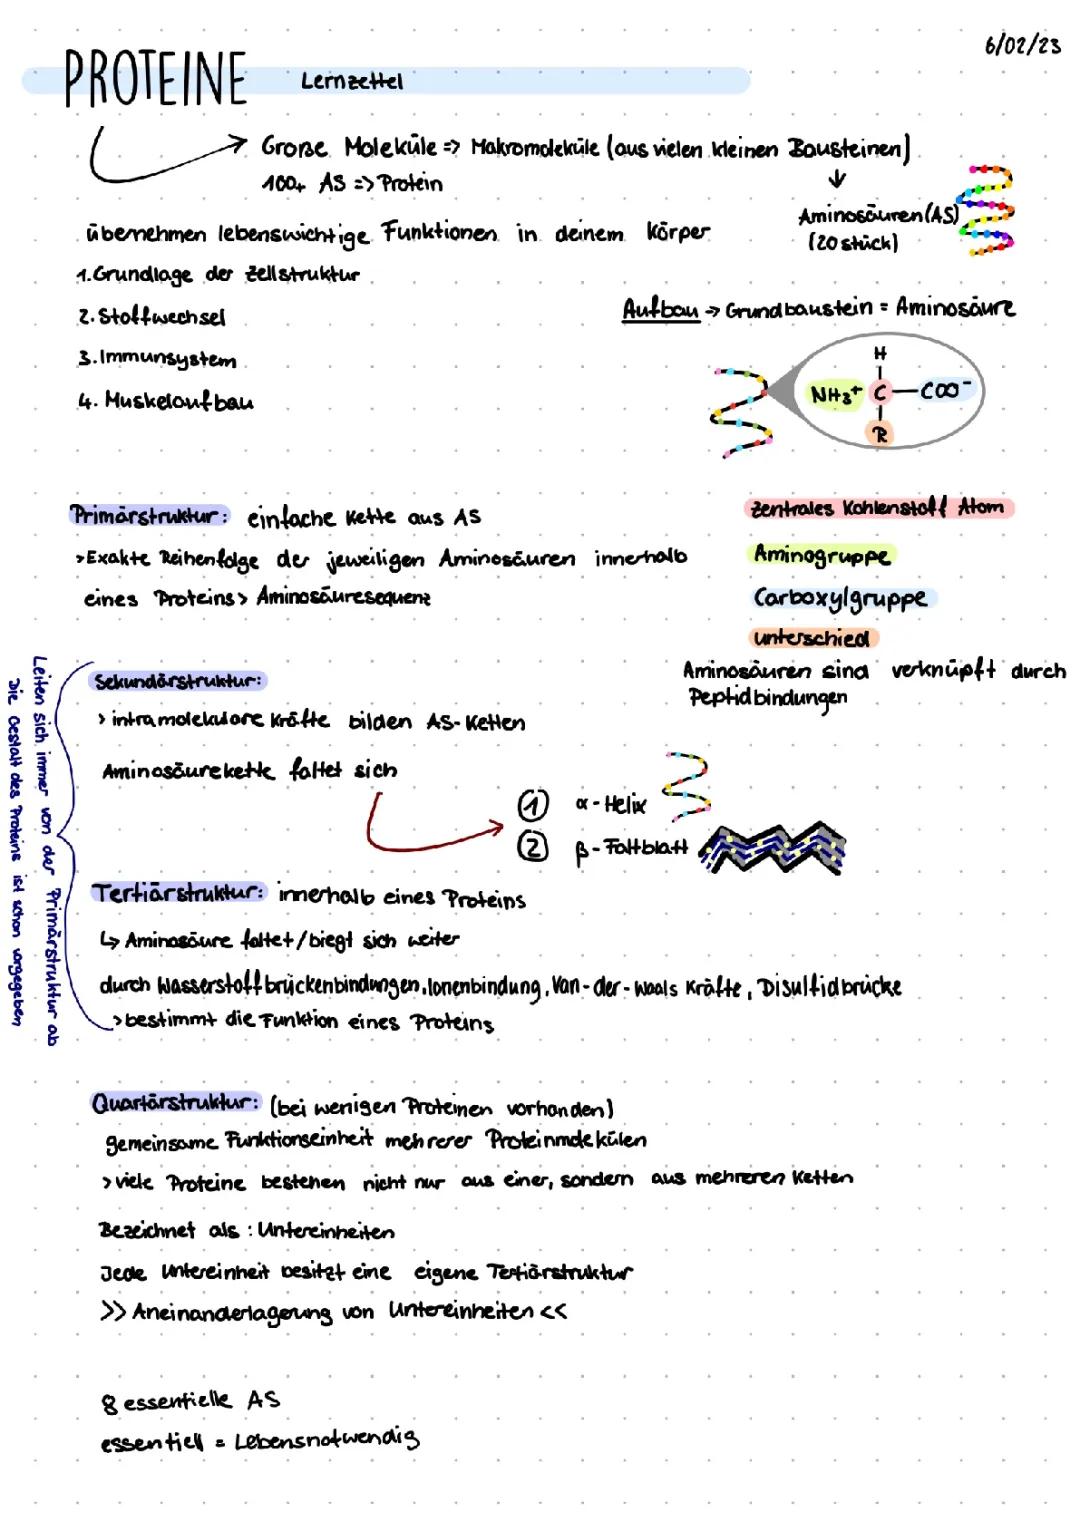 6/02/23
PROTEINE Lernzettel
Große Moleküle => Makromoleküle (aus vielen kleinen Bausteinen)
100+ AS => Protein
↓
Aminosäuren (AS)
(20 stück)
übernehmen lebenswichtige Funktionen in deinem Körper
1. Grundlage der Zellstruktur
2. Stoffwechsel
3. Immunsystem
4. Muskelaufbau
Aufbau → Grundbaustein = Aminosäure
H
NH3+ C — COO-
R
zentrales Kohlenstoff Atom
Aminogruppe
Carboxylgruppe
unterschied
Aminosäuren sind verknüpft durch
Peptidbindungen
Primärstruktur: einfache Kette aus AS
> Exakte Reihenfolge der jeweiligen Aminosäuren innerhalb
eines Proteins > Aminosäuresequenz
Leiten sich immer von der Primärstruktur ab
Die Gestalt des Proteins ist schon vorgegeben
Sekundärstruktur:
> intramolekulare Kräfte bilden AS-Ketten
Aminosäurekette faltet sich
1 α-Helix
2 β-Faltblatt
Tertiärstruktur: innerhalb eines Proteins
↳ Aminosäure faltet/biegt sich weiter
durch Wasserstoffbrückenbindungen, Ionenbindung, Van-der-Waals Kräfte, Disulfidbrücke
> bestimmt die Funktion eines Proteins
Quartärstruktur: (bei wenigen Proteinen vorhanden)
gemeinsame Funktionseinheit mehrerer Proteinmolekülen
> viele Proteine bestehen nicht nur aus einer, sondern aus mehreren Ketten
Bezeichnet als : Untereinheiten
Jede Untereinheit besitzt eine eigene Tertiärstruktur
>> Aneinanderlagerung von Untereinheiten <<
8 essentielle AS
essentiell = Lebensnotwendig